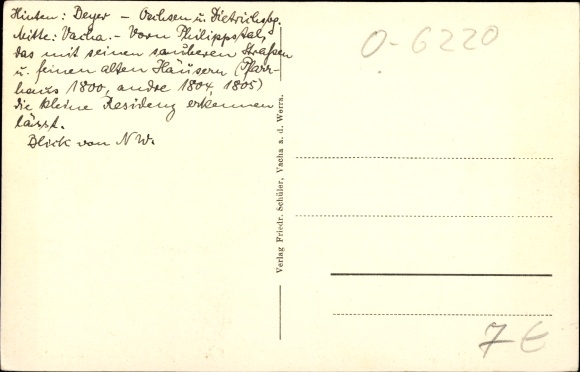 Hinten: Deyer – Oechsen u. Dietrichsbg.
Mitte: Vacha. – Vorn Philippstal,
das mit seinen sauberen Straßen
u. feinen alten Häusern (Pfarr-
haus 1800, andre 1804, 1805)
die kleine Residenz erkennen
lässt.
Blick von NW.
Verlag Friedr. Schüler, Vacha a. d. Werra.
O-6220
7 €